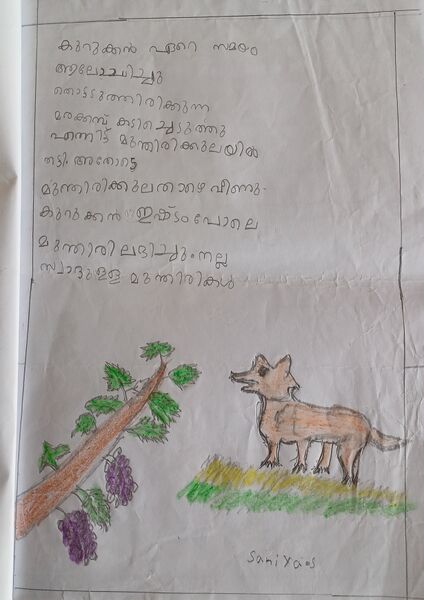 കുറുക്കൻ ഏറെ സമയം
ആലോചിച്ചു
തൊട്ടടുത്തിരിക്കുന്ന
മരക്കമ്പ് കടിച്ചെടുത്തു
എന്നിട്ട് മുന്തിരിക്കുലയിൽ
തട്ടി. അതോട്ടെ
മുന്തിരിക്കുല താഴെ വീണു.
കുറുക്കൻ ഇഷ്ടം പോലെ
മുന്തിരി ലഭിച്ചു. നല്ല
സ്വാദുള്ള മുന്തിരികൾ
Saniya.S